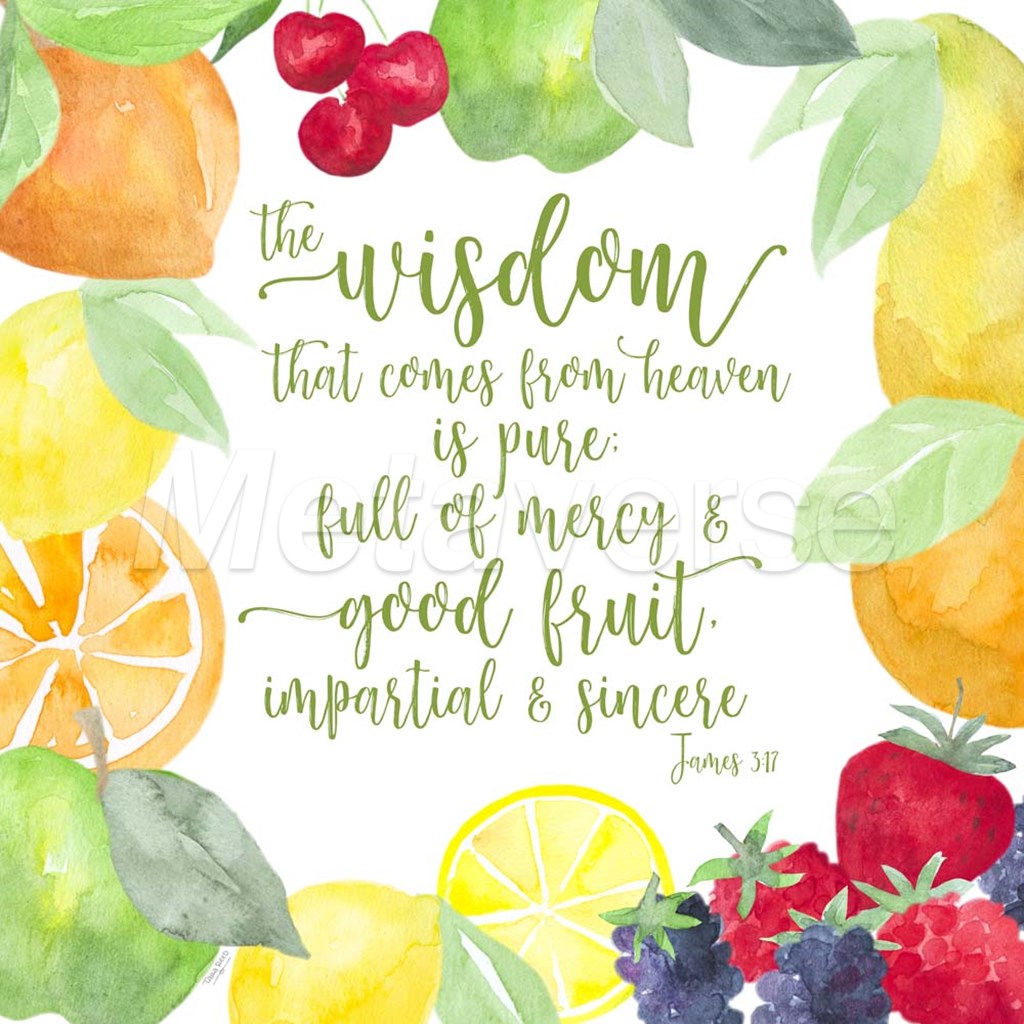 the wisdom
that comes from heaven
is pure;
full of mercy &
good fruit,
impartial & sincere
James 3:17
Metaverse
TARA REED